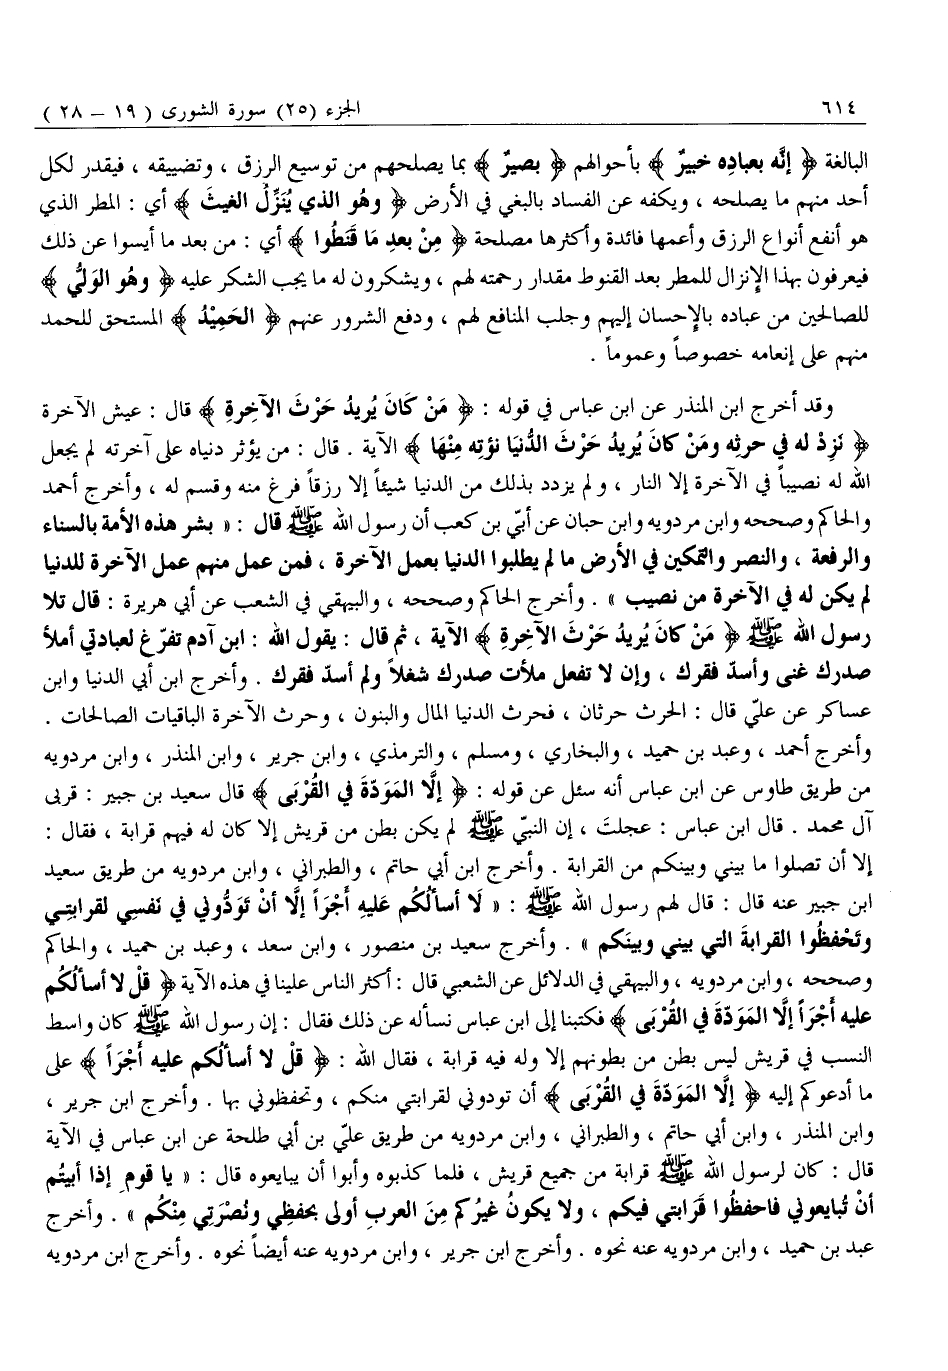 ٦١٤
الجزء (٢٥) سورة الشورى ( ١٩ – ٢٨ )
البالغة ﴿ إنَّه بعبادِه خبيرٌ ﴾ بأحوالهم ﴿ بصيرٌ ﴾ بما يصلحهم من توسيع الرزق ، وتضييقه ، فيقدر لكل
أحد منهم ما يصلحه ، ويكفه عن الفساد بالبغي في الأرض ﴿ وهُو الذي يُنَزِّلُ الغيثَ ﴾ أي : المطر الذي
هو أنفع أنواع الرزق وأعمها فائدة وأكثرها مصلحة ﴿ مِنْ بعدِ مَا قَنَطُوا ﴾ أي : من بعد ما أيسوا عن ذلك
فيعرفون بهذا الإنزال للمطر بعد القنوط مقدار رحمته لهم ، ويشكرون له ما يجب الشكر عليه ﴿ وهُو الوَليُّ ﴾
للصالحين من عباده بالإحسان إليهم وجلب المنافع لهم ، ودفع الشرور عنهم ﴿ الحَمِيْدُ ﴾ المستحق للحمد
منهم على إنعامه خصوصاً وعموماً .
وقد أخرج ابن المنذر عن ابن عباس في قوله : ﴿ مَنْ كَانَ يُريدُ حَرْثَ الآخِرةِ ﴾ قال : عيش الآخرة
﴿ نَزِدْ له في حرثِه ومَنْ كانَ يُريدُ حَرْثَ الدُّنيَا نؤتِه مِنْهَا ﴾ الآية . قال : من يؤثر دنياه على آخرته لم يجعل
الله له نصيباً في الآخرة إلا النار ، ولم يزدد بذلك من الدنيا شيئاً إلا رزقاً فرغ منه وقسم له ، وأخرج أحمد
والحاكم وصححه وابن مردويه وابن حبان عن أبيّ بن كعب أن رسول الله ﷺ قال : « بشر هذه الأمة بالسناء
والرفعة ، والنصر والتمكين في الأرض ما لم يطلبوا الدنيا بعمل الآخرة ، فمن عمل منهم عمل الآخرة للدنيا
لم يكن له في الآخرة من نصيب » . وأخرج الحاكم وصححه ، والبيهقي في الشعب عن أبي هريرة : قال تلا
رسول الله ﷺ ﴿ مَنْ كَانَ يُريدُ حَرْثَ الآخِرةِ ﴾ الآية ، ثم قال : يقول الله : ابن آدم تفرّغ لعبادتي أملأ
صدرك غنى وأسدّ فقرك ، وإن لا تفعل ملأت صدرك شغلاً ولم أسدّ فقرك . وأخرج ابن أبي الدنيا وابن
عساكر عن عليّ قال : الحرث حرثان ، فحرث الدنيا المال والبنون ، وحرث الآخرة الباقيات الصالحات .
وأخرج أحمد ، وعبد بن حميد ، والبخاري ، ومسلم ، والترمذي ، وابن جرير ، وابن المنذر ، وابن مردويه
من طريق طاوس عن ابن عباس أنه سئل عن قوله : ﴿ إلَّا المَوَدّةَ في القُرْبَى ﴾ قال سعيد بن جبير : قربى
آل محمد . قال ابن عباس : عجلتَ ، إن النبيّ ﷺ لم يكن بطن من قريش إلا كان له فيهم قرابة ، فقال :
إلا أن تصلوا ما بيني وبينكم من القرابة . وأخرج ابن أبي حاتم ، والطبراني ، وابن مردويه من طريق سعيد
ابن جبير عنه قال : قال لهم رسول الله ﷺ : « لَا أسألُكُم عَليهِ أَجْرَاً إلَّا أنْ تَوَدُّوني في نَفسِي لقرابتِي
وتَحْفظُوا القرابةَ التي بيني وبينَكم » . وأخرج سعيد بن منصور ، وابن سعد ، وعبد بن حميد ، والحاكم
وصححه ، وابن مردويه ، والبيهقي في الدلائل عن الشعبي قال : أكثر الناس علينا في هذه الآية ﴿ قلْ لا أسألُكُم
عليه أَجْرَاً إلَّا المَوَدّةَ في القُرْبَى ﴾ فكتبنا إلى ابن عباس نسأله عن ذلك فقال : إن رسول الله ﷺ كان واسط
النسب في قريش ليس بطن من بطونهم إلا وله فيه قرابة ، فقال الله : ﴿ قلْ لا أسألُكم عليه أَجْرَاً ﴾ على
ما أدعوكم إليه ﴿ إلَّا المَودّةَ في القُرْبَى ﴾ أن تودوني لقرابتي منكم ، وتحفظوني بها . وأخرج ابن جرير ،
وابن المنذر ، وابن أبي حاتم ، والطبراني ، وابن مردويه من طريق عليّ بن أبي طلحة عن ابن عباس في الآية
قال : كان لرسول الله ﷺ قرابة من جميع قريش ، فلما كذبوه وأبوا أن يبايعوه قال : « يا قومِ إذا أبيتُم
أنْ تُبايعوني فاحفظُوا قَرَابتي فيكم ، ولا يكونُ غيرُكم مِنَ العربِ أولى بحفظِي ونُصْرَتِي مِنْكُم » . وأخرج
عبد بن حميد ، وابن مردويه عنه نحوه . وأخرج ابن جرير ، وابن مردويه عنه أيضاً نحوه . وأخرج ابن مردويه